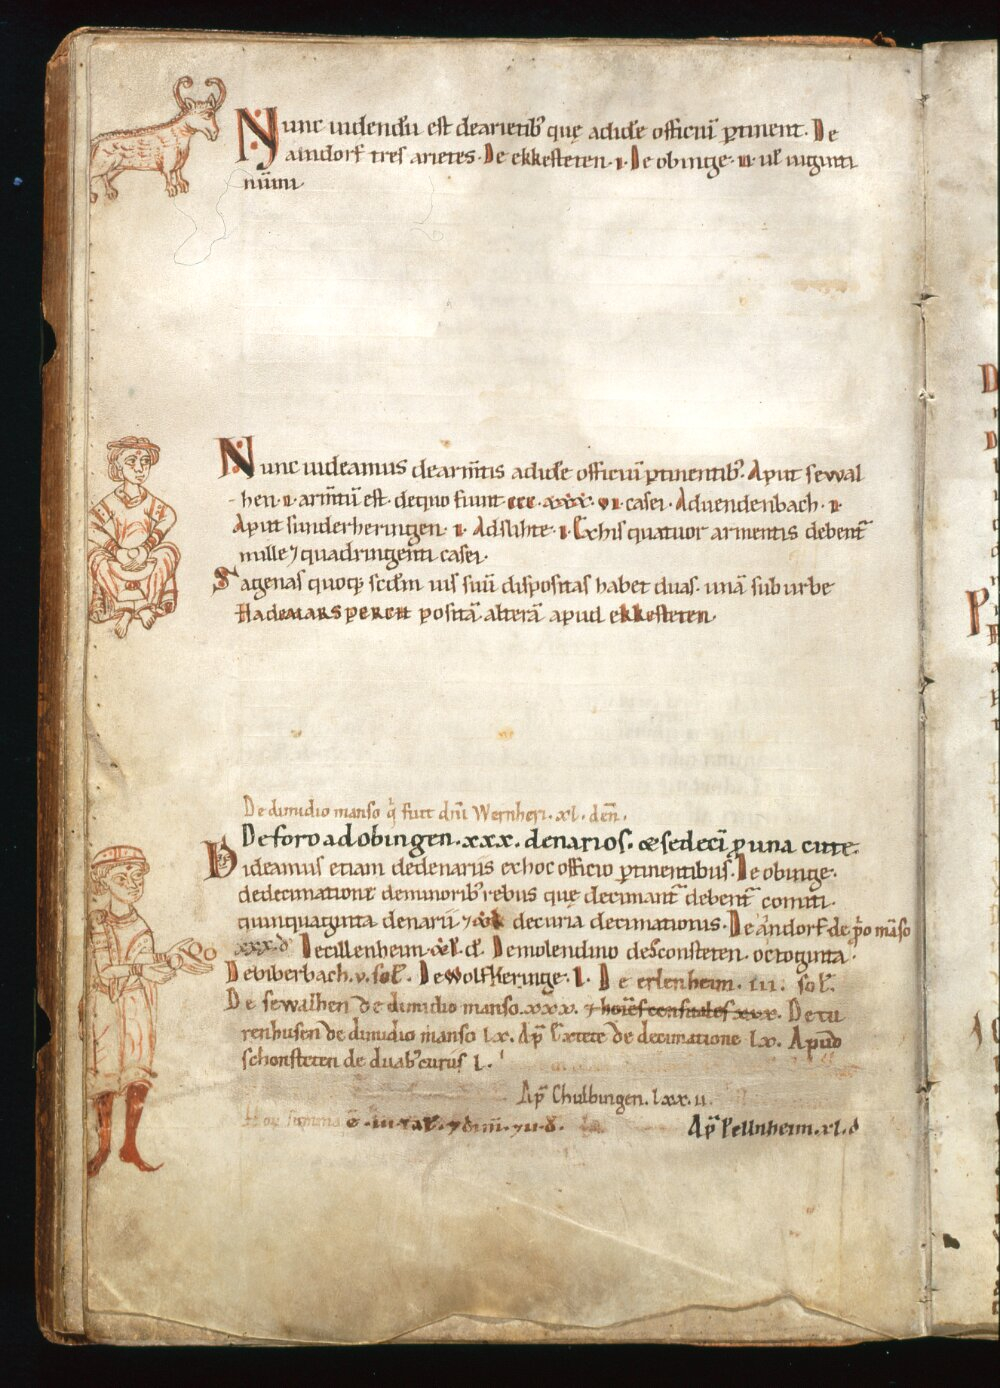 Nunc uidendū est dearietib' quę adide officiū ptinent. De
aindorf tres arietes. De ekkesteten .i. De obinge .ii. uł uiginti
nūmi.
Nunc uideamus dearm̄tis adide officiū ptinentib'. Aput sewal
hen .ii. arm̄tū est. dequo fiunt ccc. xxx. vi casei. Aduendenbach .ii.
Aput sunderheringen .i. Adslihte .i. Exhis quatuor armentis debent̄
mille ⁊ quadringenti casei.
Sagenas quoq; scd̄m uis suū dispositas habet duas. unā sub urbe
Hademarsperch positā. alterā apud ekkesteten.
De dimidio manso q̄ fuit dn̄i Wernheri. xl. den̄.
De foro ad obingen. xxx. denarios. & sedeci p una cute.
Uideamus etiam dedenariis exhoc officio ptinentibus. De obinge.
dedecimatione deminorib' rebus quę decimant̄ debent̄ comiti.
quinquaginta denarii ⁊ decuria decimationis. De aindorf. de p̄o māso
xxx. đ. De cillenheim đ. De molendino de Sconsteten. octoginta.
De biberbach. v. soł. De Wolfkeringe. l. De erlenheim. iii. soł.
De sewalhen de dimidio manso. xxx. ⁊ hoīes censuales xxx. De tu
renhusen de dimidio manso lx. Ap̄ Extete de decimatione lx. Apud
schonsteten de duab' curiis l.
Ap̄ Chulbingen. lxx. ii.
Hoy summa
Ap̄ Pellnheim. xl. đ